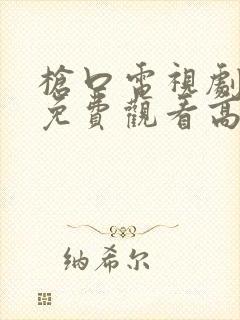 槍口電視劇
免費觀看高
纳希尔